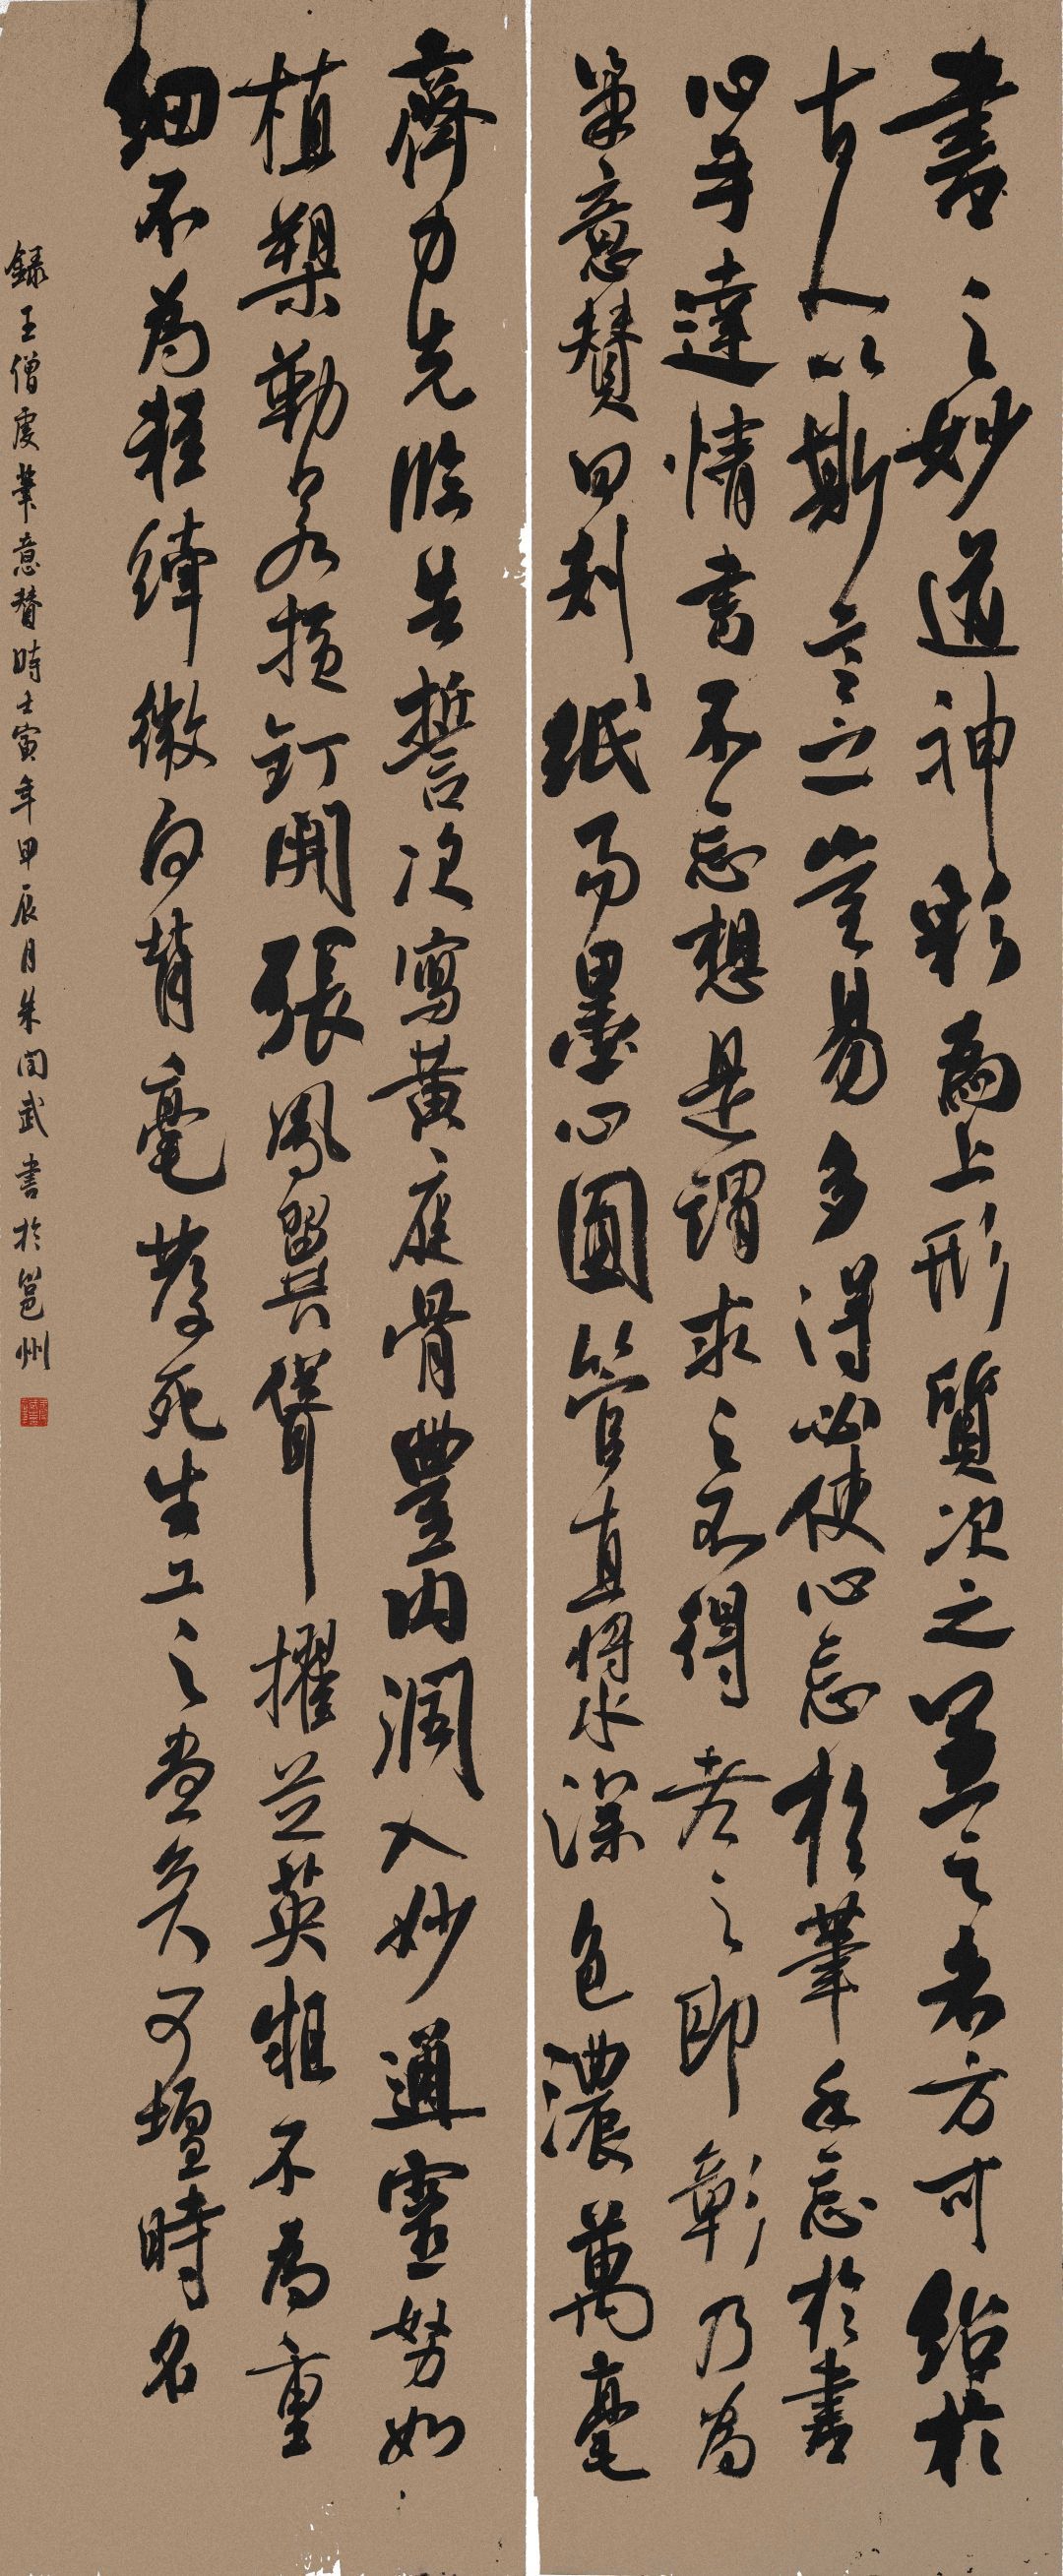 書之妙道神彩為上形質次之兼之者方可紹於
古人以斯言之豈易多得必使心忘於筆手忘於書
心手達情書不忘想是謂求之不得考之即彰乃為
筆意贊曰剡紙易墨心圓管直將水深色濃萬毫
齊力先臨告誓次寫黃庭骨豐肉潤入妙通靈努如
植槊勒若橫釘開張鳳翼聳擢芝英粗不為重
細不為輕纖微向背毫髮死生工之盡矣可擅時名
錄王僧虔筆意贊時壬寅年甲辰月朱聞武書於邕州